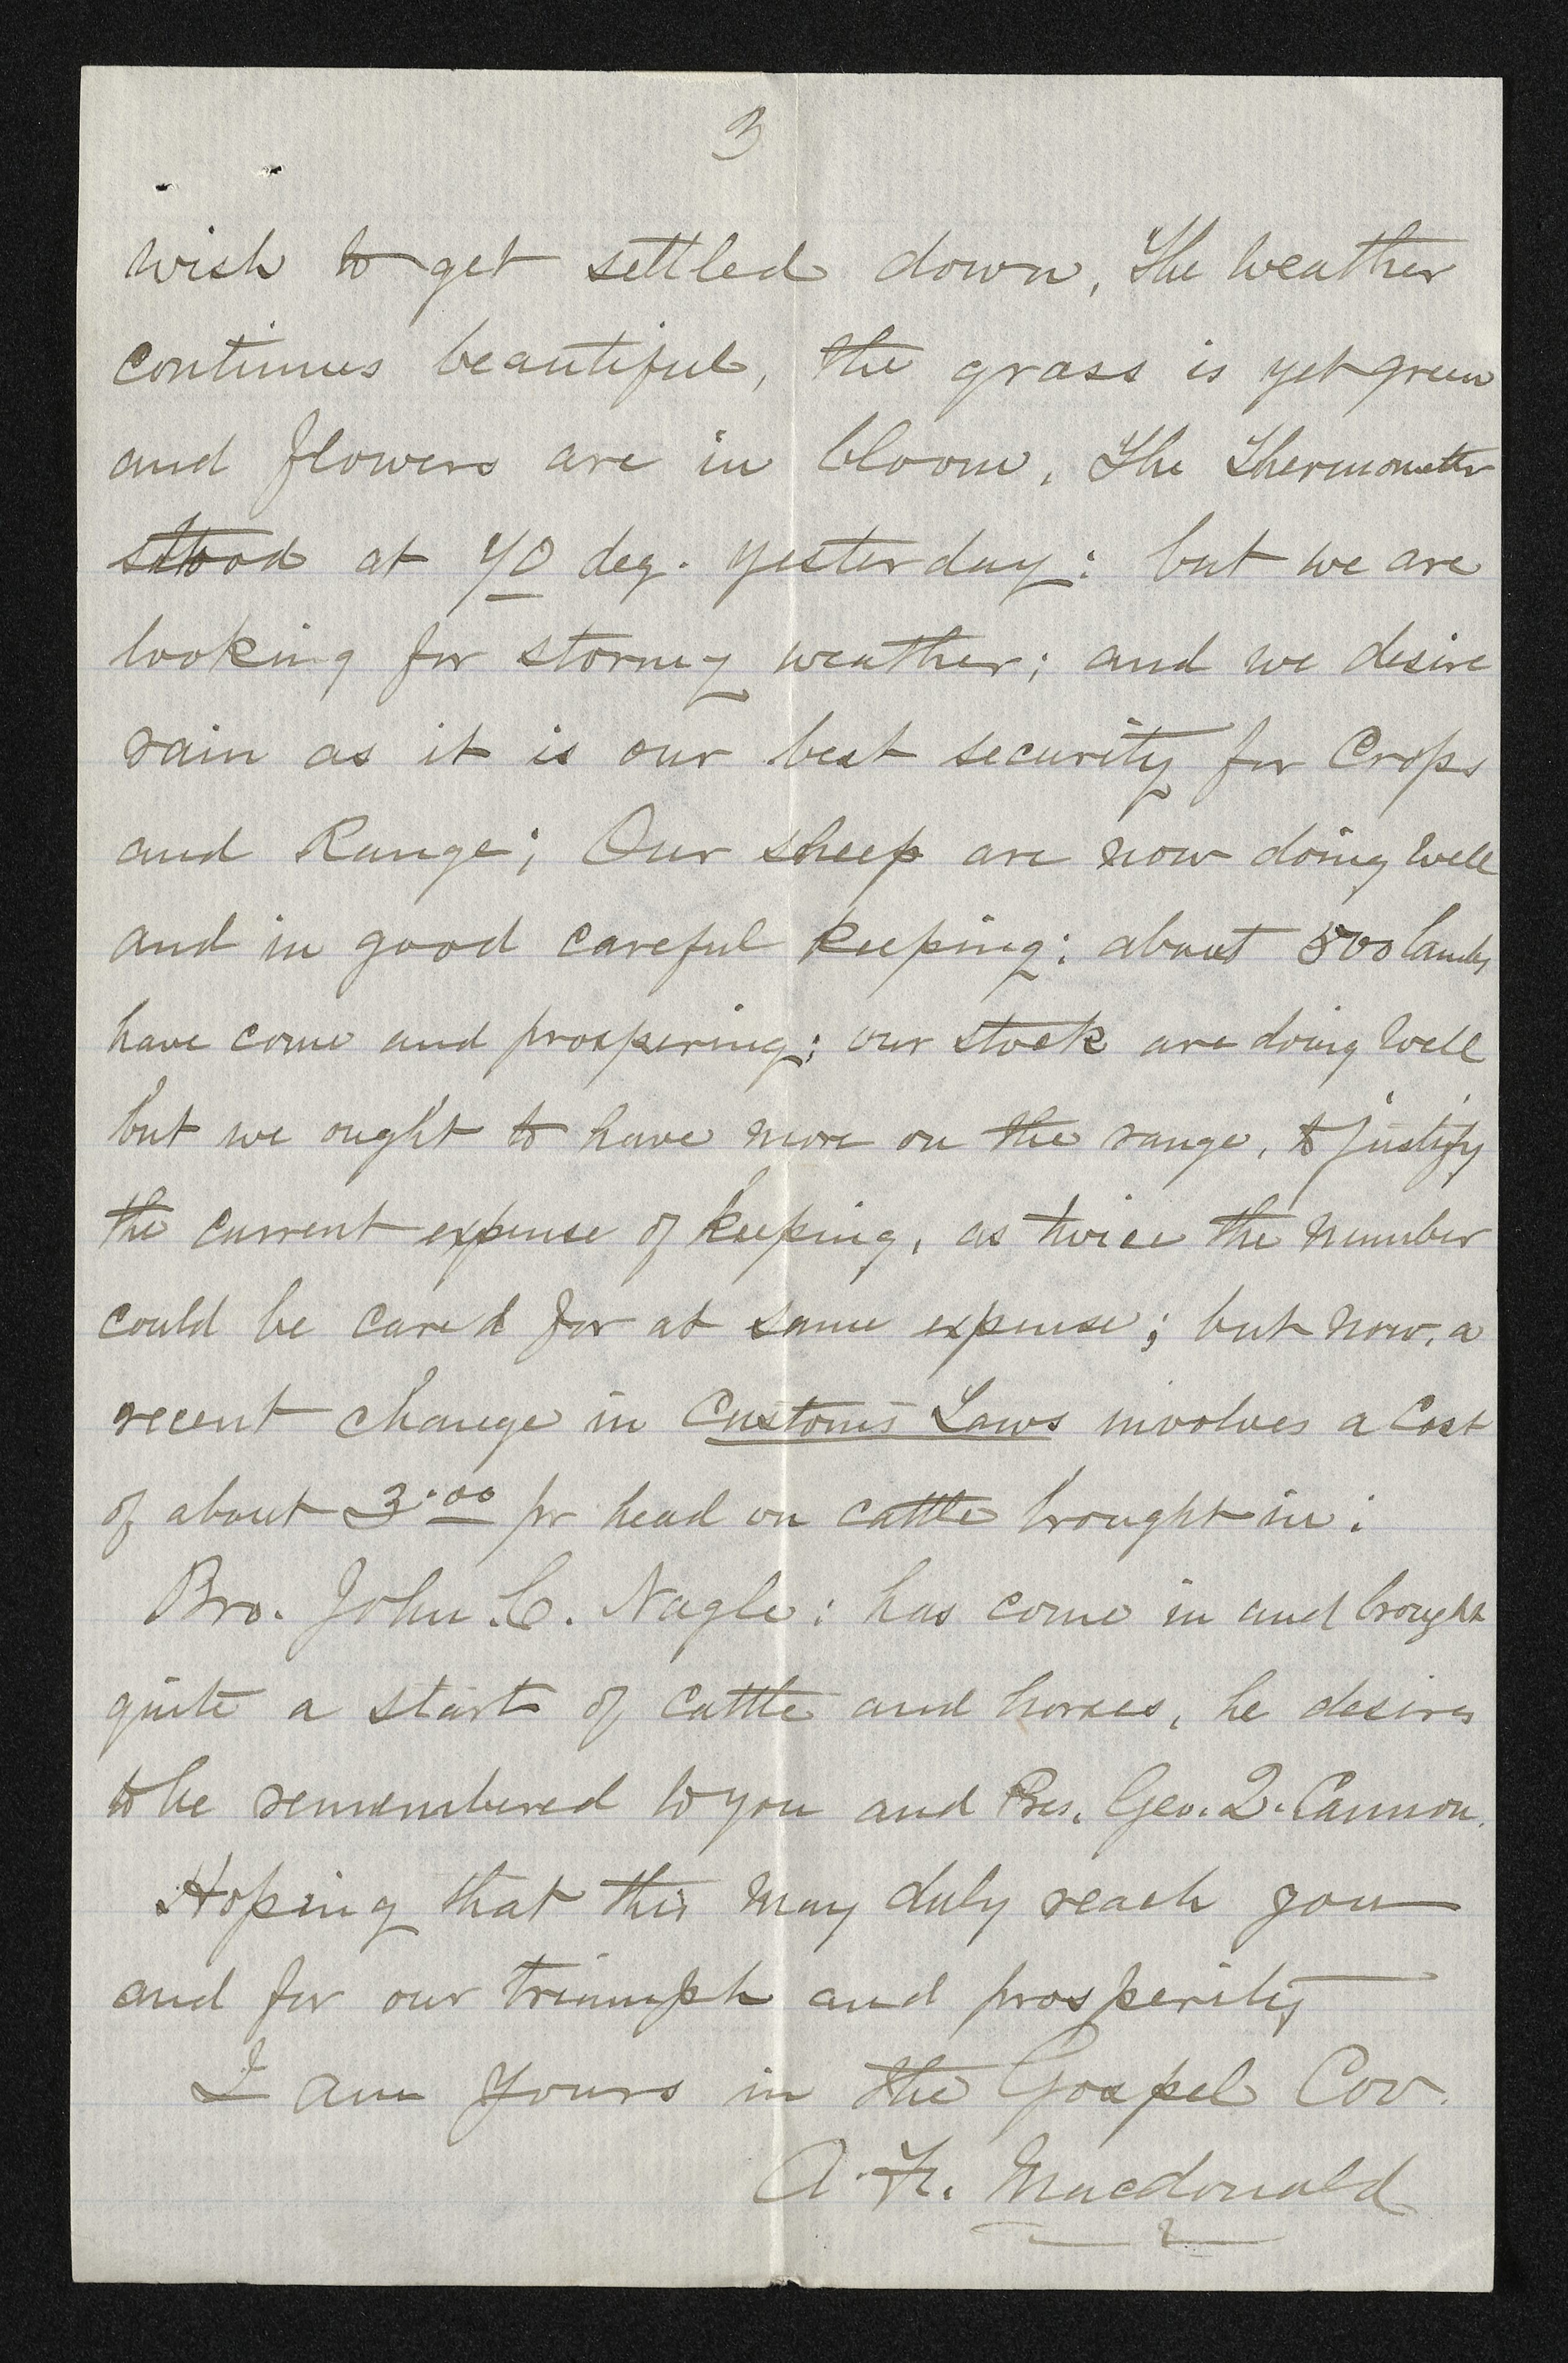 3
wish to get settled down, The weather
continues beautiful, the grass is yet green
and flowers are in bloom, The Thermometer
stood at 70 deg. yesterday: but we are
looking for stormy weather; and we desire
rain as it is our best security for Crops
and Range; Our sheep are now doing well
and in good careful keeping: about 500 lambs
have come and prospering; our stock are doing well
but we ought to have more on the range, to justify
the current expense of keeping, as twice the number
could be cared for at same expense; but now, a
recent change in Customs Laws involves a Cost
of about 3.00 pr head on cattle brought in:
Bro. John C. Nagle: has come in and brought
quite a start of cattle and horses, he desires
to be remembered to you and Pres. Geo. Q. Cannon.
Hoping that this may duly reach you
and for our triumph and prosperity
I am Yours in the Gospel Cov.
A. F. Macdonald